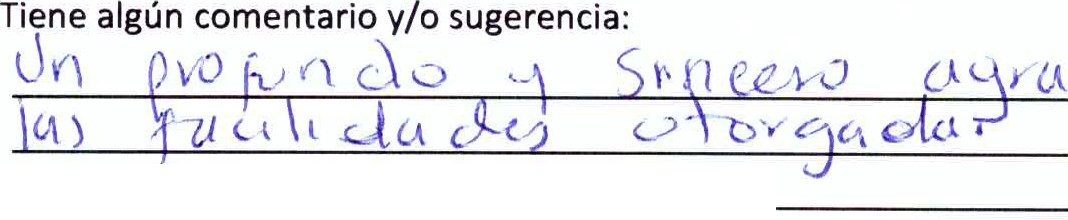 Tiene algún comentario y/o sugerencia:
Un profundo y sincero agra
las facilidades otorgadas